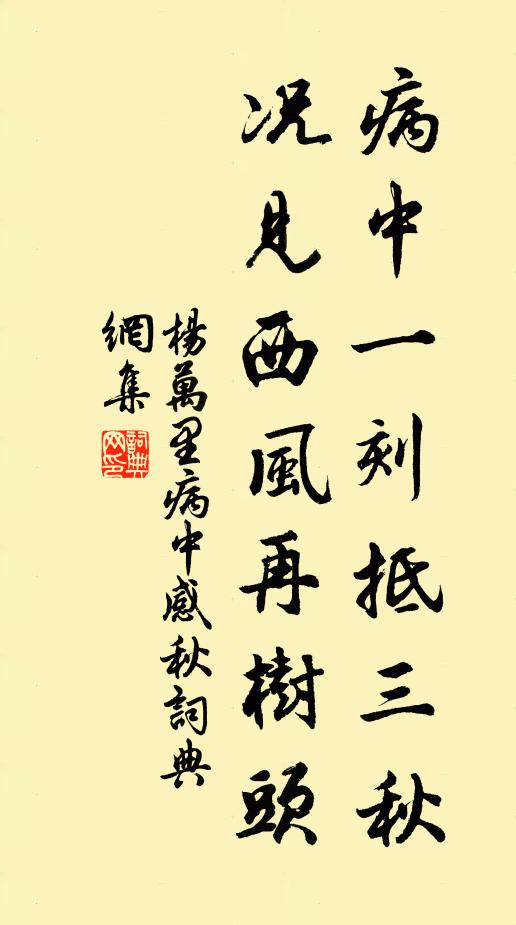 病中一刻抵三秋
况見西風再樹頭
楊萬里病中感秋詞典
網集
詞典網印